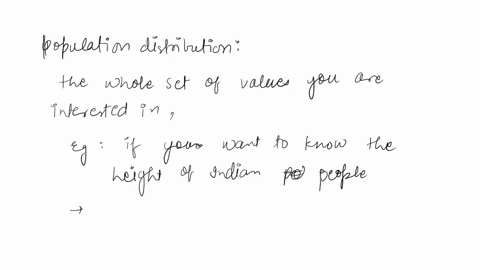 Population distribution:
the whole set of values you are
interested in,
Eg: if your want to know the
height of Indian people
→